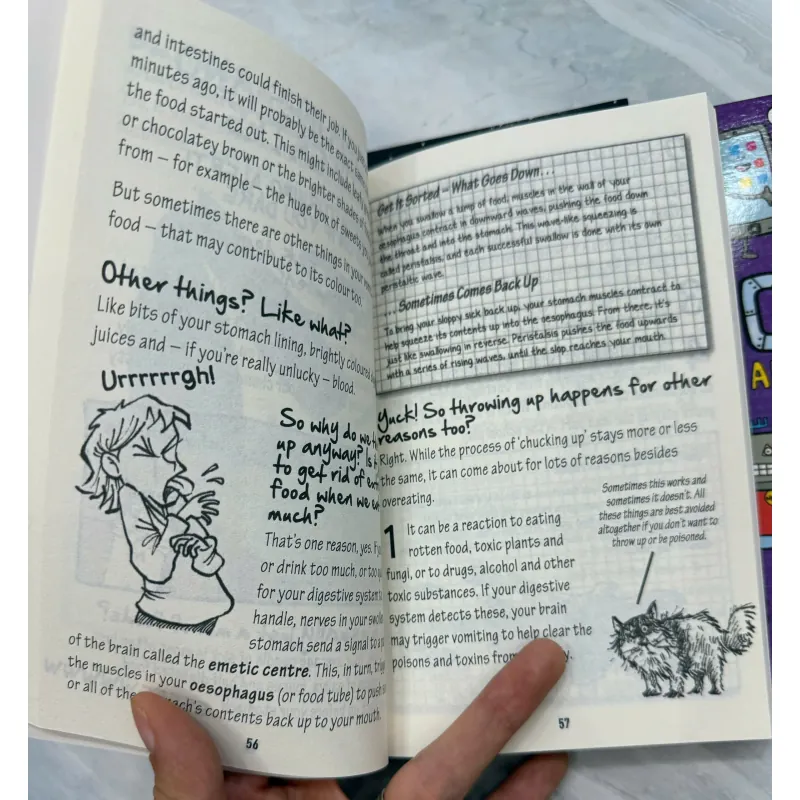 and intestines could finish their job. If you
minutes ago, it will probably be the exact
the food started out. This might include
or chocolatey brown or the brighter shades
from – for example – the huge box of sweets you
But sometimes there are other things in your
food – that may contribute to its colour too.
Other things? Like what?
Like bits of your stomach lining, brightly coloured
juices and – if you're really unlucky – blood.
Urrrrrrgh!
So why do we
up anyway? Is
to get rid of
food when we
much?
That's one reason, yes. If
or drink too much, or too
for your digestive system
handle, nerves in your
stomach send a signal to
of the brain called the emetic centre. This, in turn,
the muscles in your oesophagus (or food tube) to push
or all of the contents back up to your mouth.
56
Get It Sorted – What Goes Down...
When you swallow a lump of food, muscles in the wall of your
oesophagus contract in downward waves, pushing the food down
the throat and into the stomach. This wave-like squeezing is
called peristalsis, and each successful swallow is done with its own
peristaltic wave.
...Sometimes Comes Back Up
To bring your sloppy sick back up, your stomach muscles contract to
help squeeze its contents up into the oesophagus. From there, it's
just like swallowing in reverse. Peristalsis pushes the food upwards
with a series of rising waves, until the slop reaches your mouth.
Yuck! So throwing up happens for other
reasons too?
Right. While the process of 'chucking up' stays more or less
the same, it can come about for lots of reasons besides
overeating.
1 It can be a reaction to eating
rotten food, toxic plants and
fungi, or to drugs, alcohol and other
toxic substances. If your digestive
system detects these, your brain
may trigger vomiting to help clear the
poisons and toxins
Sometimes this works and
sometimes it doesn't. All
these things are best avoided
altogether if you don't want to
throw up or be poisoned.
57